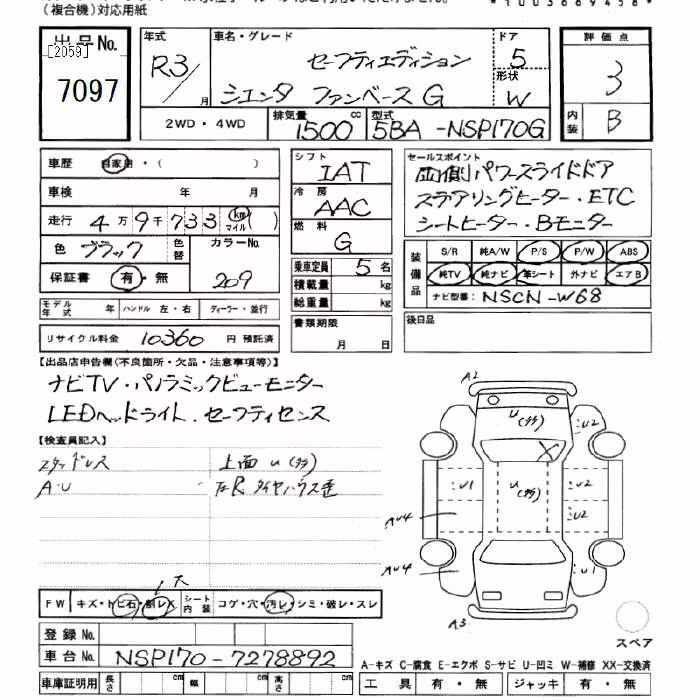 （複合機）対応用紙
＊1003689458＊
出品No.
[2059]
7097
年式
R3/
月
車名・グレード
セーフティエディション
シエンタ ファンベース G
ドア
5
形状
W
評価点
3
内装
B
2WD・4WD
排気量
1500
cc
型式
5BA-NSP170G
車歴
自家用・（　）
車検
年　月
走行
4万9千733
km
マイル
（　）
色
ブラック
色替
カラーNo.
209
保証書
有・無
モデル年式
年
ハンドル 左・右
ディーラー・並行
リサイクル料金
10360
円 預託済
シフト
IAT
冷房
AAC
燃料
G
乗車定員
5名
積載量
kg
総重量
kg
書類期限
月　日
セールスポイント
両側パワースライドドア
ステアリングヒーター・ETC
シートヒーター・Bモニター
装備品
S/R 純A/W P/S P/W ABS
純TV 純ナビ 革シート 外ナビ エアB
ナビ型番：NSCN-W68
後日品
【出品店申告欄（不良箇所・欠品・注意事項等）】
ナビTV・パノラミックビューモニター
LEDヘッドライト・セーフティセンス
【検査員記入】
スタッドレス
上面 u（多）
A・U
左R タイヤハウス歪
A2
u（多）
X
U2
U1
u（多）
U2
AU4
U2
AU4
U1
A3
スペア
大
FW
キズ・トビ石・割レX
シート内装
コゲ・穴・汚レ・シミ・破レ・スレ
登録No.
車台No.
NSP170-7278892
車庫証明用
長さ
cm
幅
cm
高さ
cm
A-キズ C-腐食 E-エクボ S-サビ U-凹ミ W-補修 XX-交換済
工具
有・無
ジャッキ
有・無